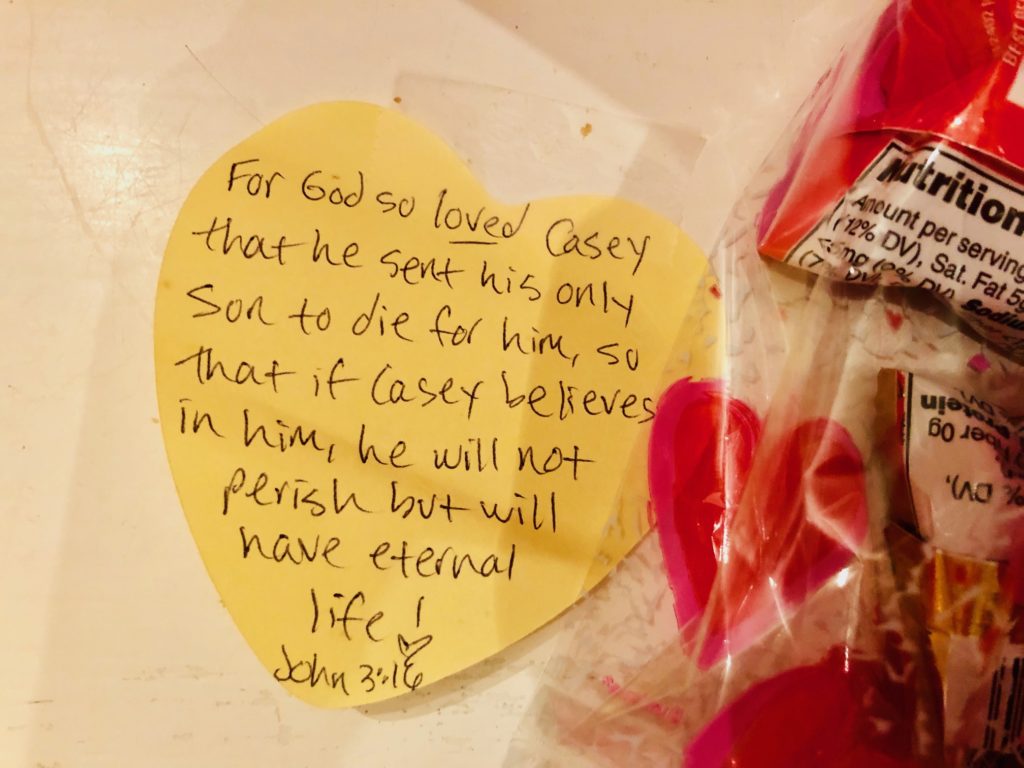 For God so loved Casey
that he sent his only
Son to die for him, so
that if Casey believes
in him, he will not
perish but will
have eternal
life!
John 3:16
Nutrition
Amount per serving
(12% DV), Sat. Fat 5g
DV), Sodiu
otein
ber 0g
% DV),